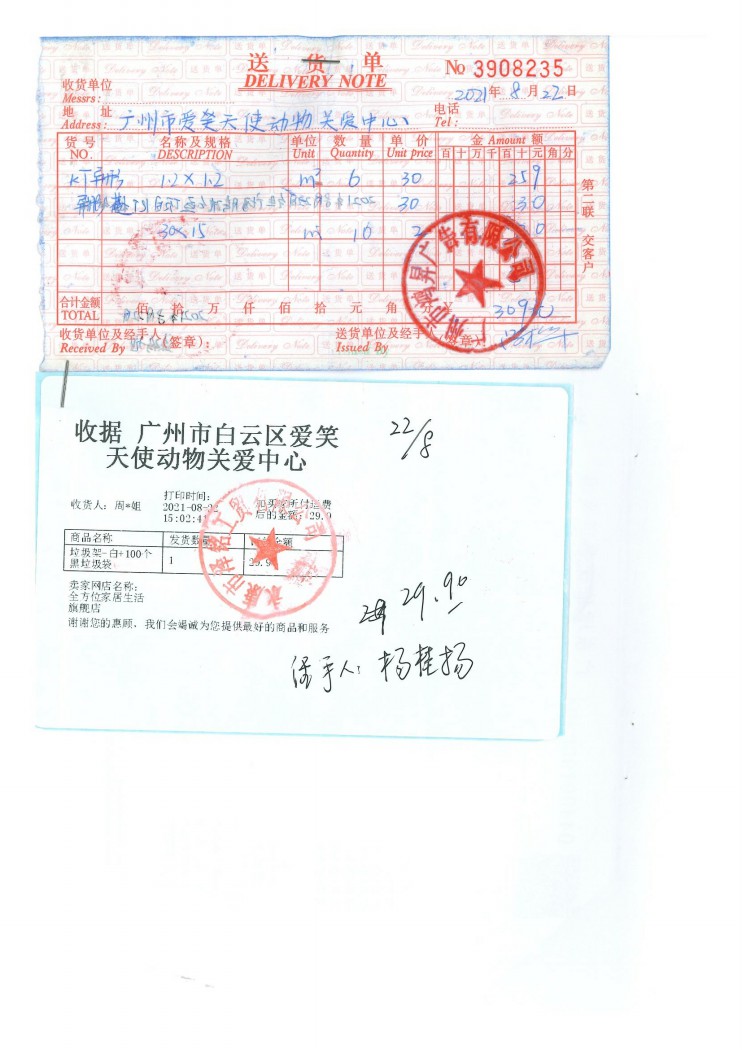 送 货 单
DELIVERY NOTE
No 3908235
收货单位
Messrs:
2021年 8 月 22 日
地 址
Address: 广州市爱笑天使动物关爱中心
电话
Tel:
货号 名称及规格 单位 数量 单价 金 Amount 额
NO. DESCRIPTION Unit Quantity Unit price 百十万千百十元角分
KT异形 1.2×1.2 m² 6 30 259
30 30
30×15 m 10
第二联 交客户
合计金额 佰 拾 万 仟 佰 拾 元 角 ¥ 309元
TOTAL
收货单位及经手人(签章):
Received By
送货单位及经手
Issued By
广州市鸿昇广告有限公司
收据 广州市白云区爱笑
天使动物关爱中心
22/8
收货人: 周*姐
打印时间:
2021-08-22
15:02:4
后的金额: 29.9
商品名称 发货数量 金额
垃圾架-白+100个
黑垃圾袋 1 29.9
卖家网店名称:
全方位家居生活
旗舰店
谢谢您的惠顾，我们会竭诚为您提供最好的商品和服务
29.90
经手人: 杨桂扬